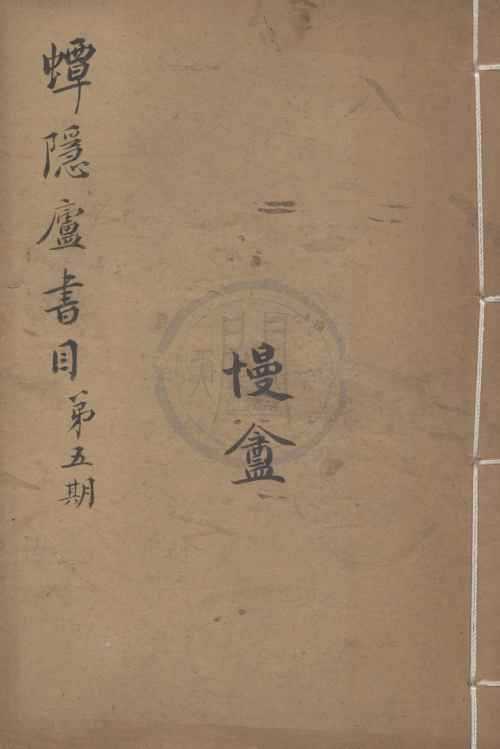 蟫隱廬書目第五期
慢盫